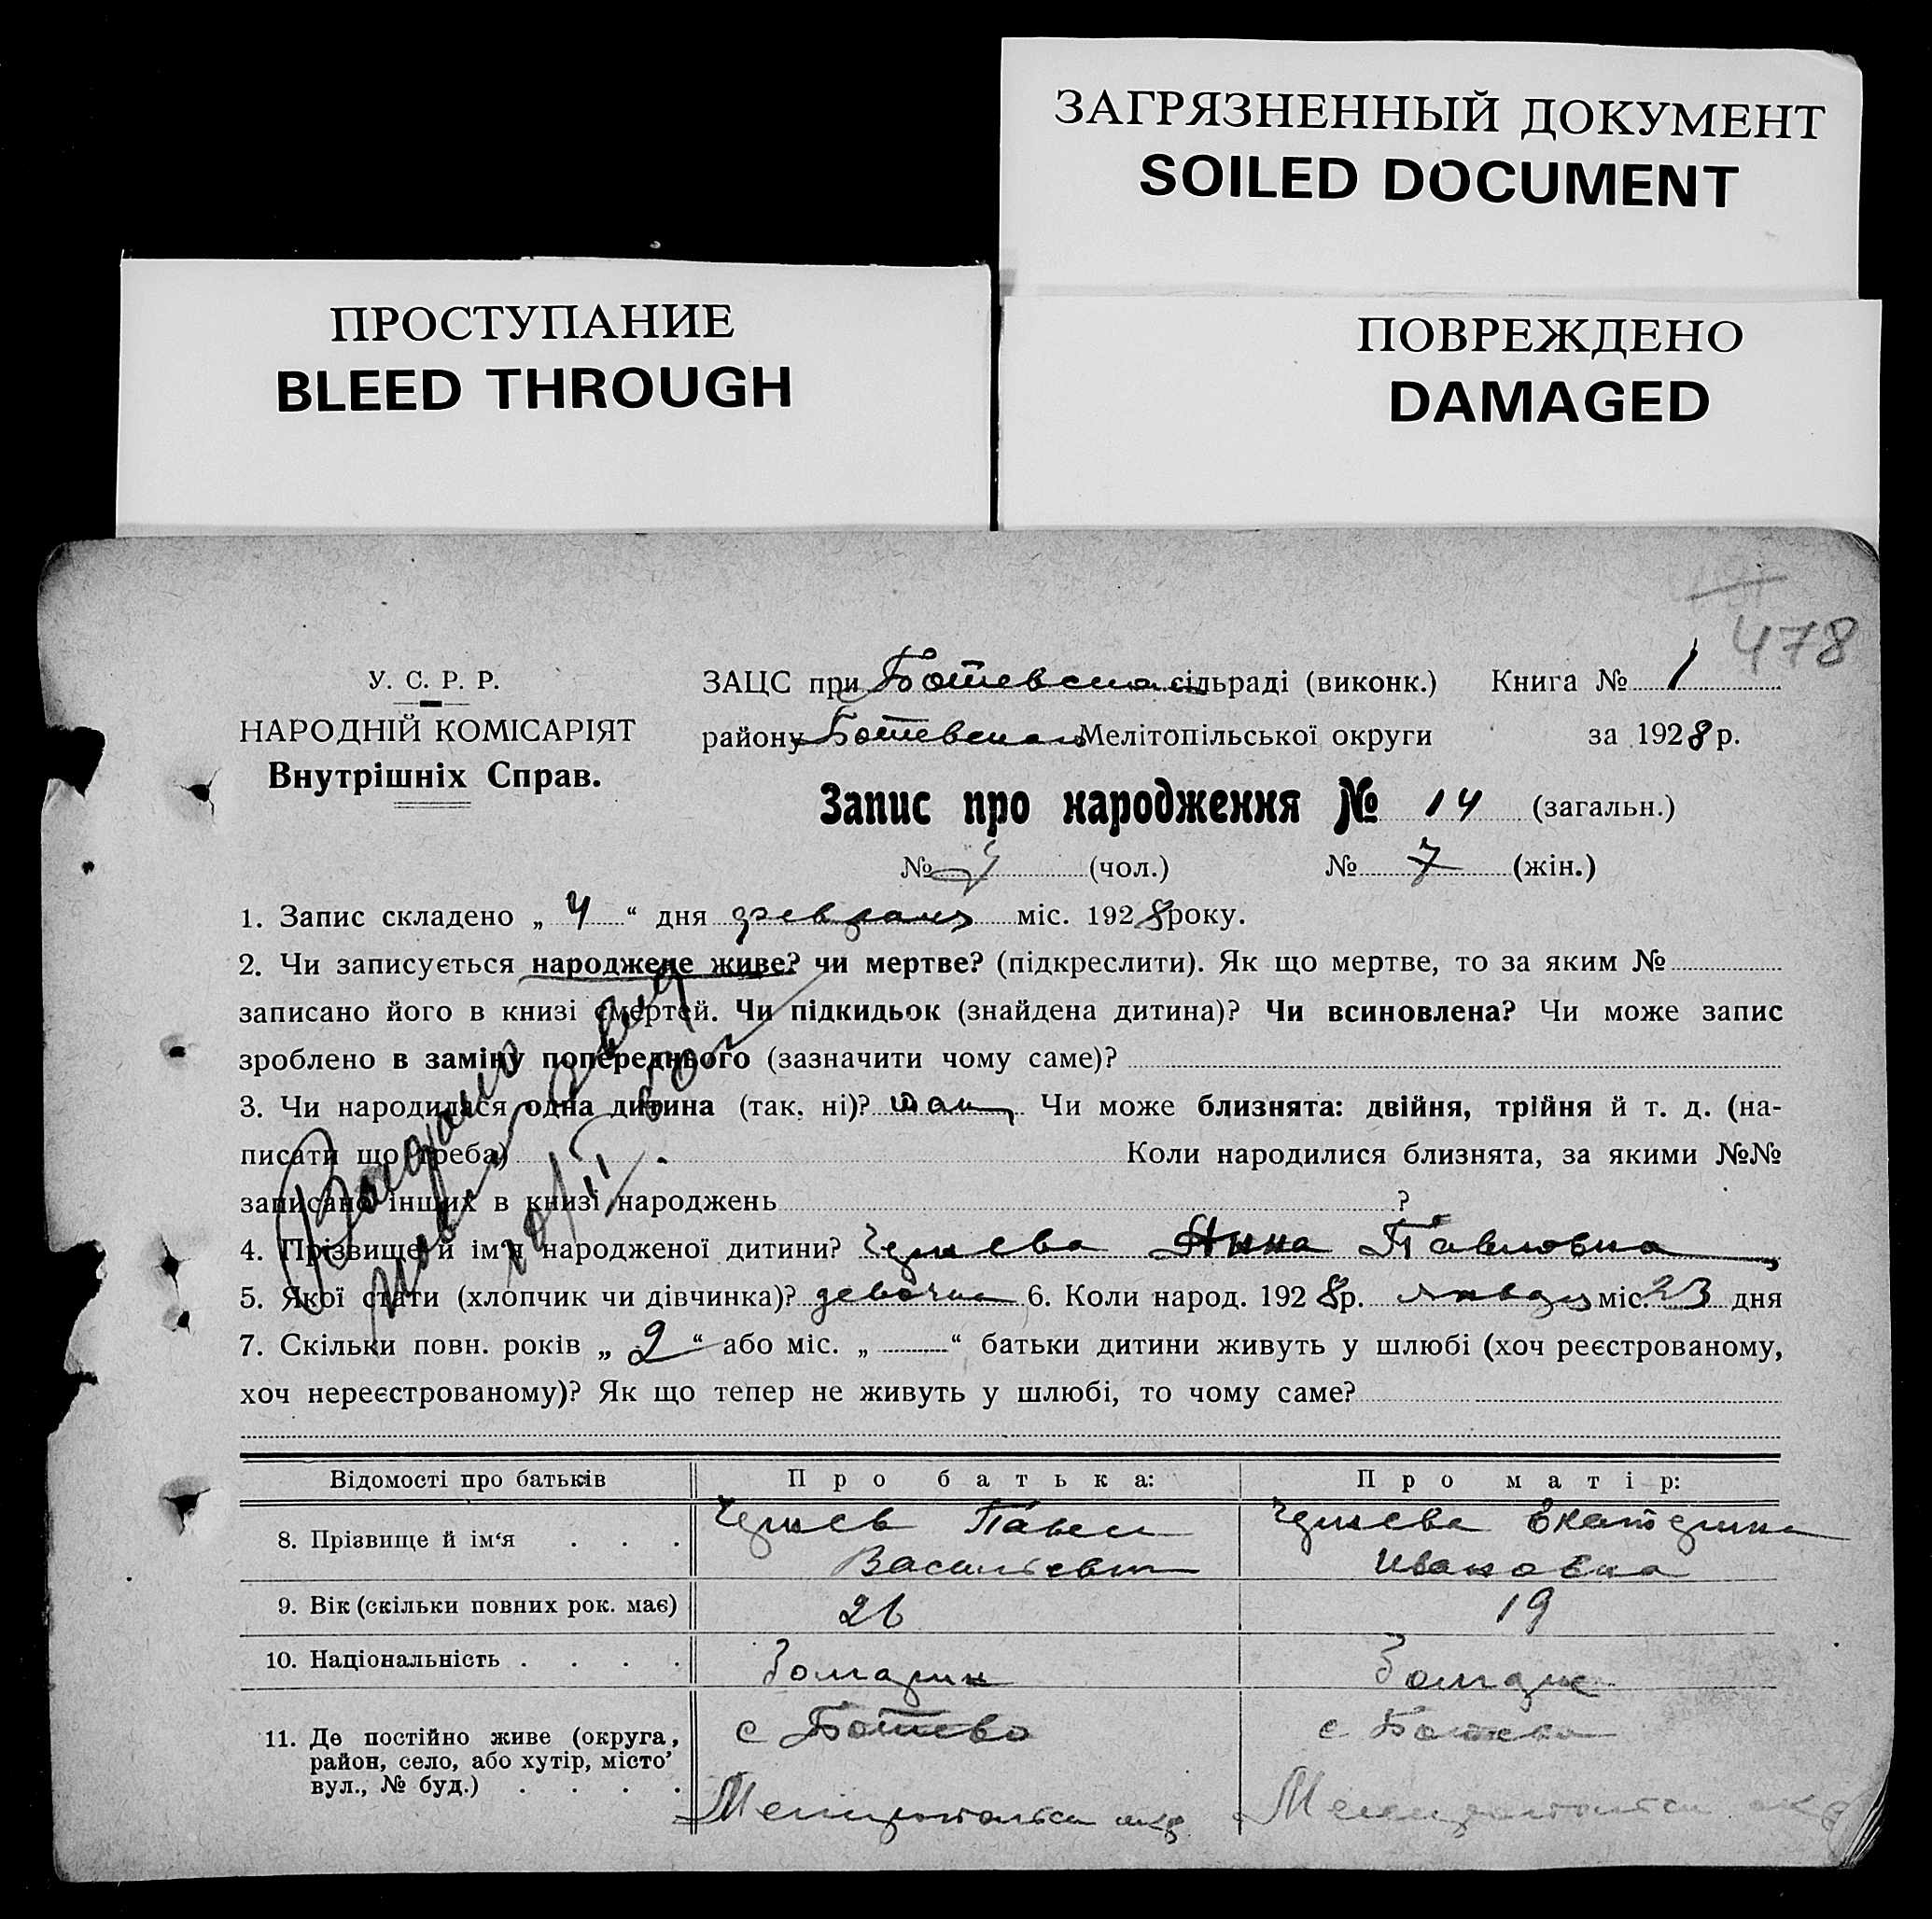 ЗАГРЯЗНЕННЫЙ ДОКУМЕНТ
SOILED DOCUMENT
ПРОСТУПАНИЕ
BLEED THROUGH
ПОВРЕЖДЕНО
DAMAGED
478
У. С. Р. Р.
НАРОДНІЙ КОМІСАРІЯТ
Внутрішніх Справ.
ЗАЦС при Ботевском сільраді (виконк.) Книга № 1
району Ботевском Мелітопільської округи за 1928 р.
Запис про народження № 14 (загальн.)
№ (чол.) № 7 (жін.)
1. Запис складено „ 4 “ дня февраля міс. 1928 року.
2. Чи записується народжене живе? чи мертве? (підкреслити). Як що мертве, то за яким №
записано його в книзі смертей. Чи підкидьок (знайдена дитина)? Чи всиновлена? Чи може запис
зроблено в заміну попереднього (зазначити чому саме)?
3. Чи народилася одна дитина (так, ні)? так Чи може близнята: двійня, трійня й т. д. (на-
писати що треба) Коли народилися близнята, за якими №№
записано інших в книзі народжень ?
4. Прізвище й ім'я народженої дитини? Анна Павловна
5. Якої стати (хлопчик чи дівчинка)? девочка 6. Коли народ. 1928 р. январ міс. 23 дня
7. Скільки повн. років „ 2 “ або міс. „ “ батьки дитини живуть у шлюбі (хоч реєстрованому,
хоч нереєстрованому)? Як що тепер не живуть у шлюбі, то чому саме?
Відомості про батьків Про батька: Про матір:
8. Прізвище й ім‘я Павел Васильевич Екатерина Ивановна
9. Вік (скільки повних рок. має) 26 19
10. Національність болгарин болгарк
11. Де постійно живе (округа, с Ботево с Ботево
район, село, або хутір, місто’
вул., № буд.) Мелитопольск окр Мелитопольск окр